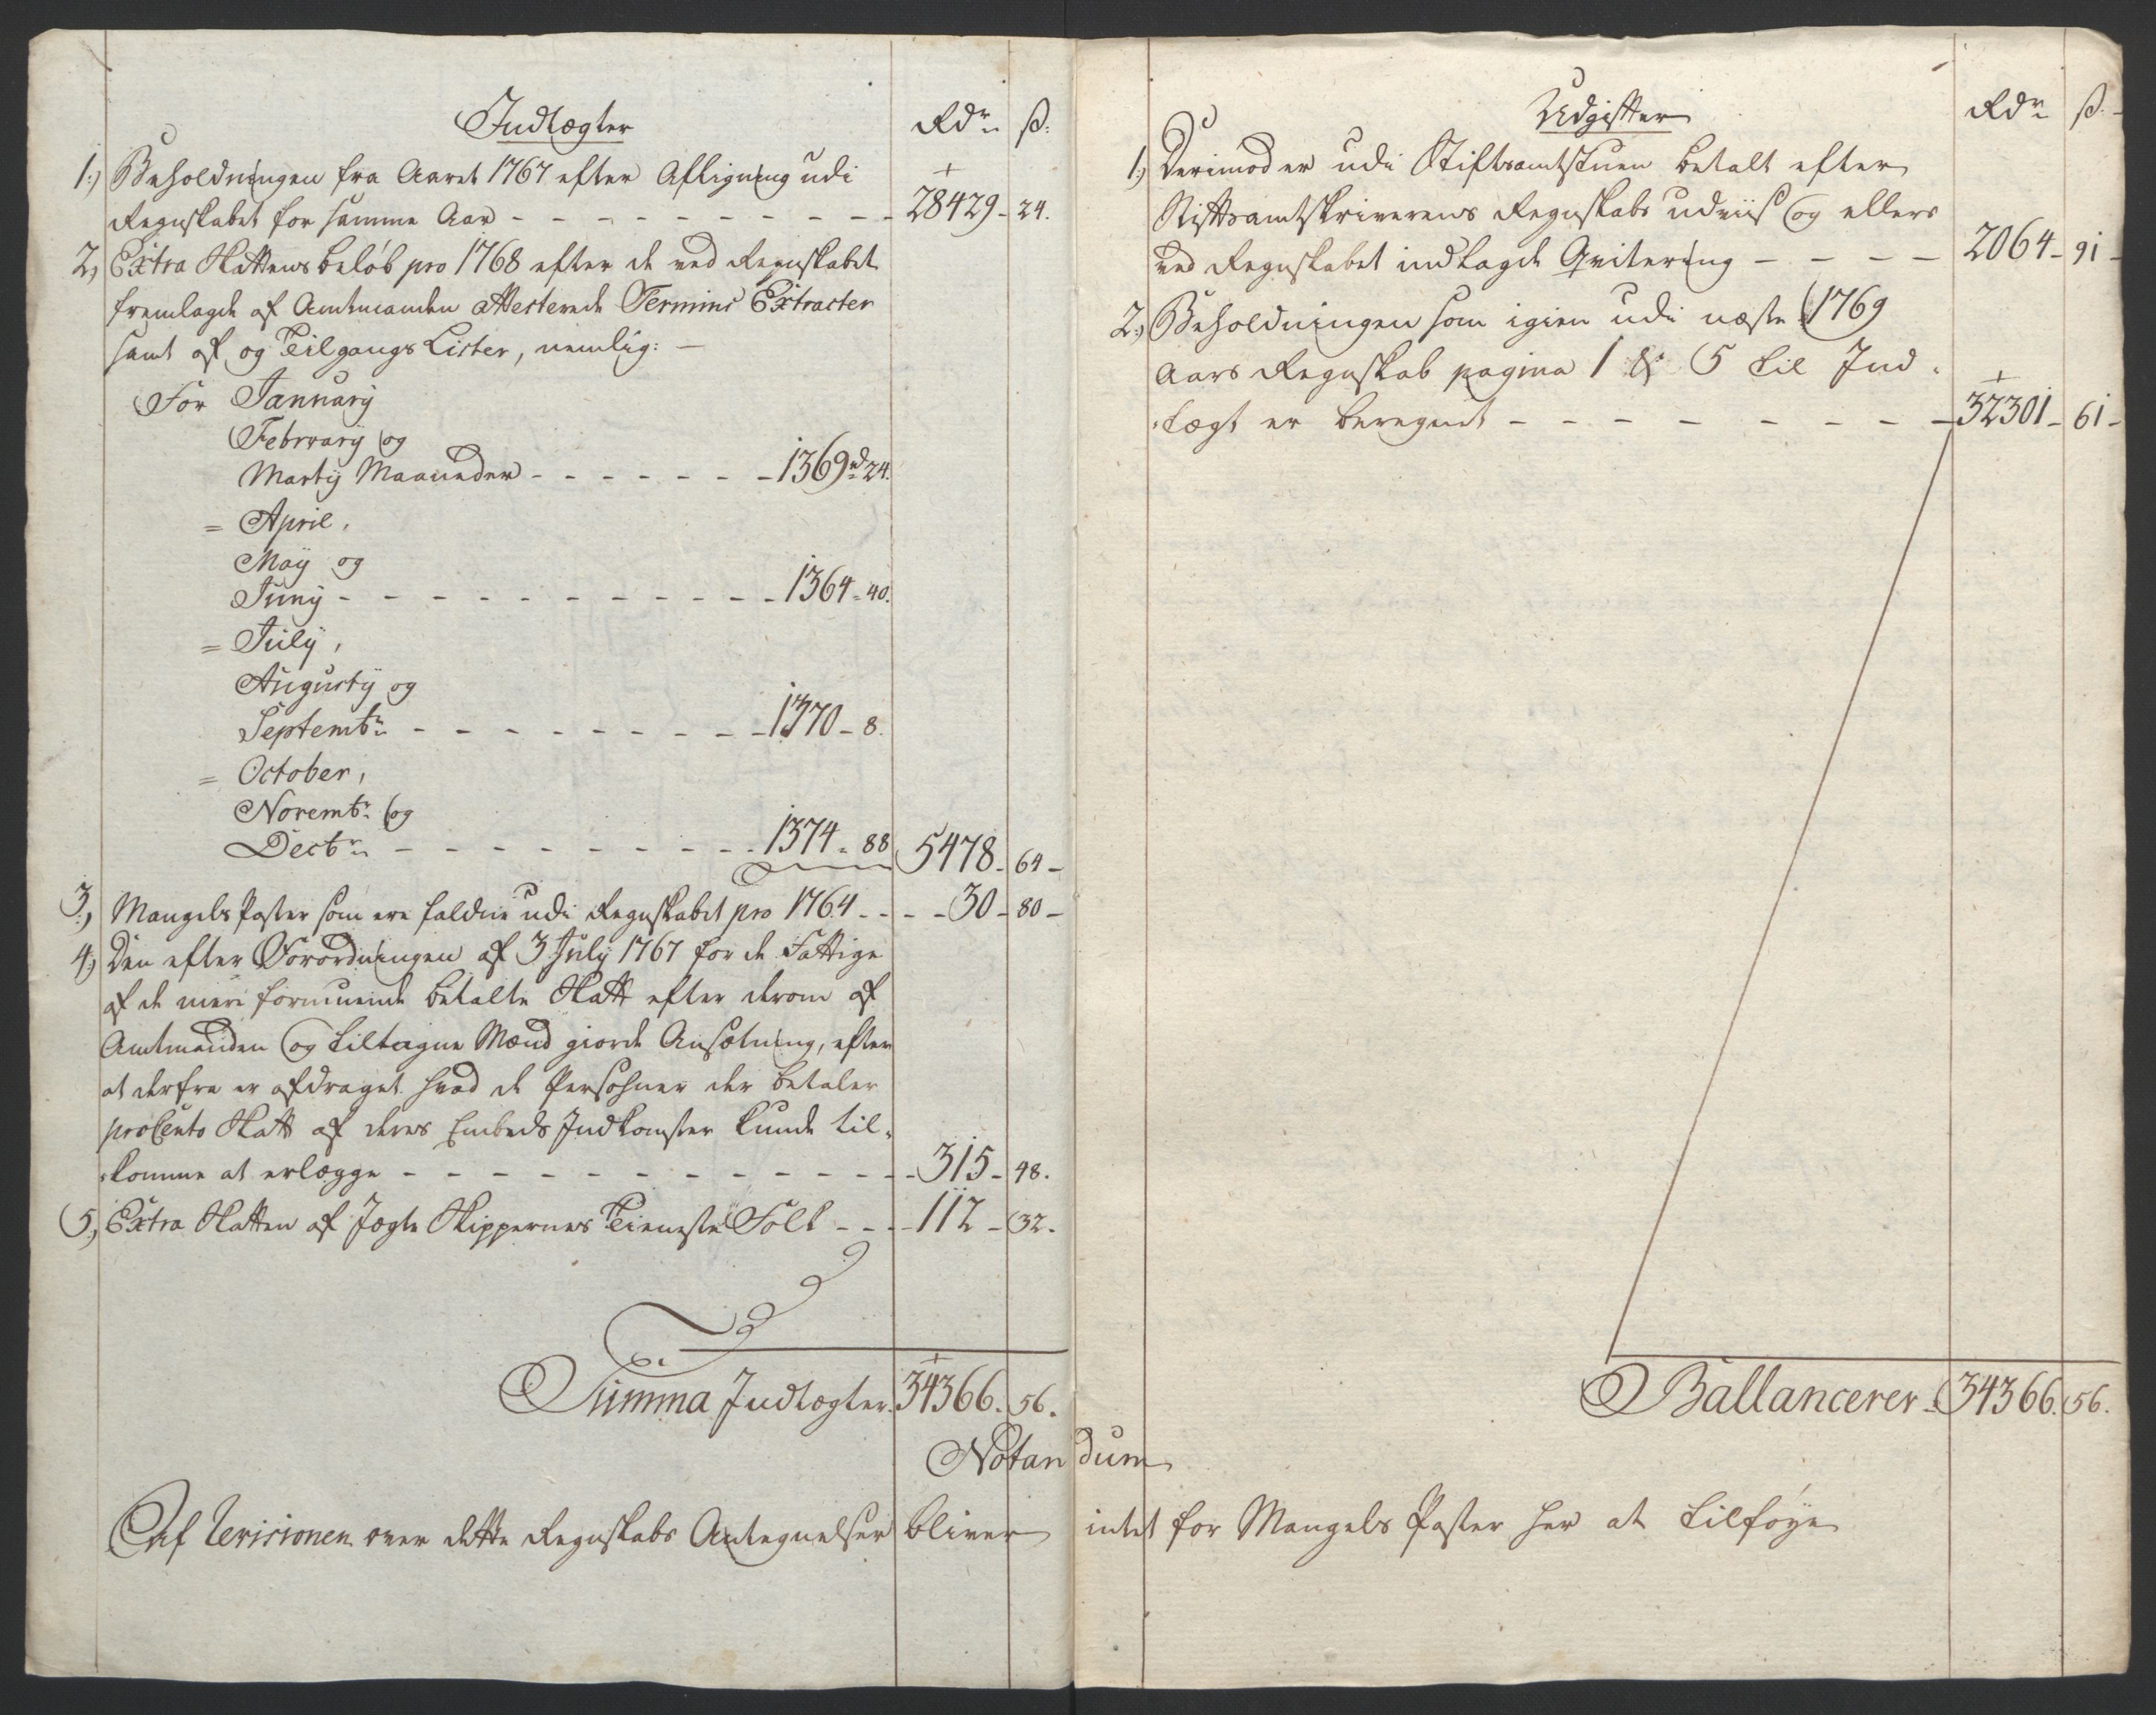 Indtægter Rdr ß:
1.) Beholdningen fra Aaret 1767 efter Afligning udi
Regnskabet for samme Aar - - - - - - - - - 28429 - 24.
2.) Extra Skattens beløb pro 1768 efter de ved Regnskabet
fremlagde af Amtmanden Attesterede Termins Extracter
samt af og Tilgangs Lister, nemlig: -
For January
February og
Marty Maaneder - - - - - - - 1369 rd 24.
= April,
May og
Juny - - - - - - - - - - 1364 - 40.
= July,
Augusty og
Septembr - - - - - - - - 1370 - 8.
= October,
Novembr og
Decbr - - - - - - - - 1374 - 88 5478 - 64 -
3.) Mangels Poster som ere faldne udi Regnskabet pro 1764 - - - 30 - 80 -
4.) Den efter Forordningen af 3 July 1767 for de Fattige
af de mere formuende betalte Skatt efter derom af
Amtmanden og tiltagne Mænd giorde Ansætning, efter
at derfra er afdraget hvad de Persohner der betaler
proCento Skatt af deres Embeds Indkomster kunde til-
-komme at erlægge - - - - - - - - - - - 315 - 48.
5.) Extra Skatten af Jægte Skippernes Tieneste Folk - - - 112 - 32.
Summa Indtægter. 34366. 56.
Udgifter Rdr ß.
1.) Derimod er udi Stiftamtstuen betalt efter
Stiftsamtskriverens Regnskabs udviis og ellers
ved Regnskabet indtagde Qvitering - - - - 2064 - 91 -
2.) Beholdningen som igien udi næste 1769
Aars Regnskab pagina 1 & 5 til Ind-
-tægt er beregnet - - - - - - - - 32301 - 61 -
Ballancerer - 34366. 56.
Notandum
Af Revisionen over dette Regnskabs Antegnelser bliver intet for Mangels Poster her at tilføye